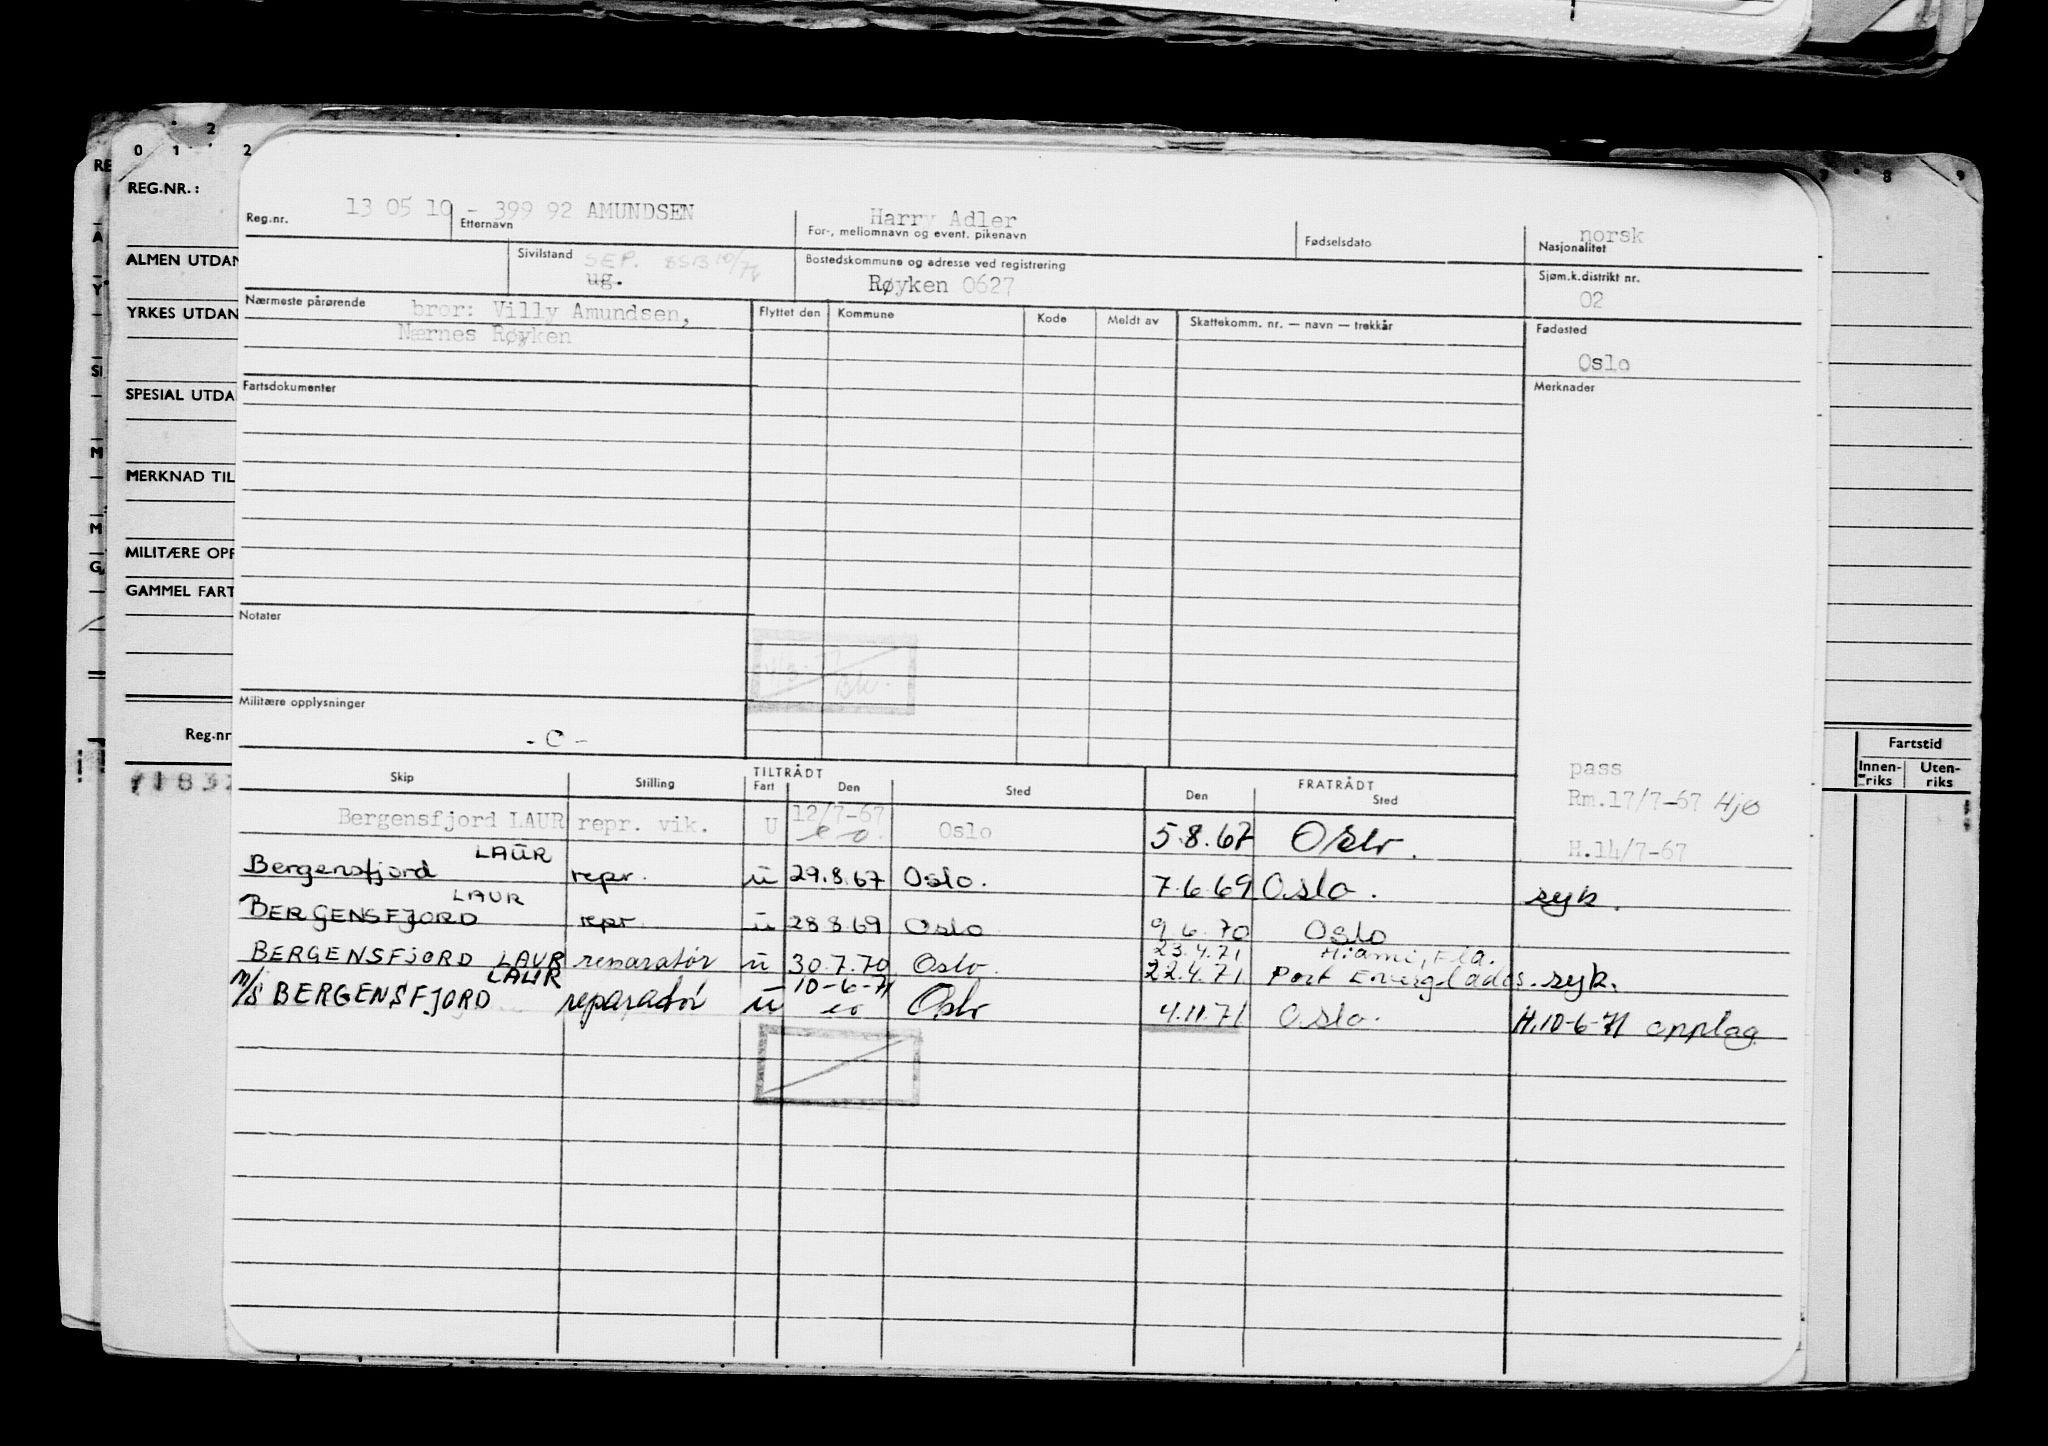 0 1 2 2 7 8 9
RE
REG.NR.:
ALMEN UTDAN
YRKES UTDAN
SPESIAL UTDA
MERKNAD TIL
MILITÆRE OPP
GAMMEL FART
Reg.nr
Fartstid
Innen-
riks
Uten-
riks
13 05 10 - 399 92 AMUNDSEN Harry Adler norsk
Reg.nr. Etternavn For-, mellomnavn og event. pikenavn Fødselsdato Nasjonalitet
Sivilstand SEP. BSB 10/74 Bostedskommune og adresse ved registrering Sjøm.k.distrikt nr.
ug. Røyken 0627 02
Nærmeste pårørende bror: Villy Amundsen, Flyttet den Kommune Kode Meldt av Skattekomm. nr. — navn — trekkår Fødested
Nærnes Røyken Oslo
Fartsdokumenter Merknader
Notater
Militære opplysninger
- C -
pass
Rm.17/7-67 Hjo
H.14/7-67
Skip Stilling TILTRÅDT Fart Den Sted FRATRÅDT Den Sted
Bergensfjord LAUR repr. vik. U 12/7-67 Oslo 5.8.67 Oslo.
Bergensfjord LAUR repr. u 29.8.67 Oslo. 7.6.69 Oslo. syk.
BERGENSFJORD LAUR repr. u 28.8.69 Oslo 9.6.70 Oslo
23.4.71 Miami, Fla.
BERGENSFJORD LAUR reparatør u 30.7.70 Oslo. 22.4.71 Port Everglades. syk.
M/S BERGENSFJORD LAUR reparatør u 10-6-71 Oslo 4.11.71 Oslo. H.10-6-71 opplag